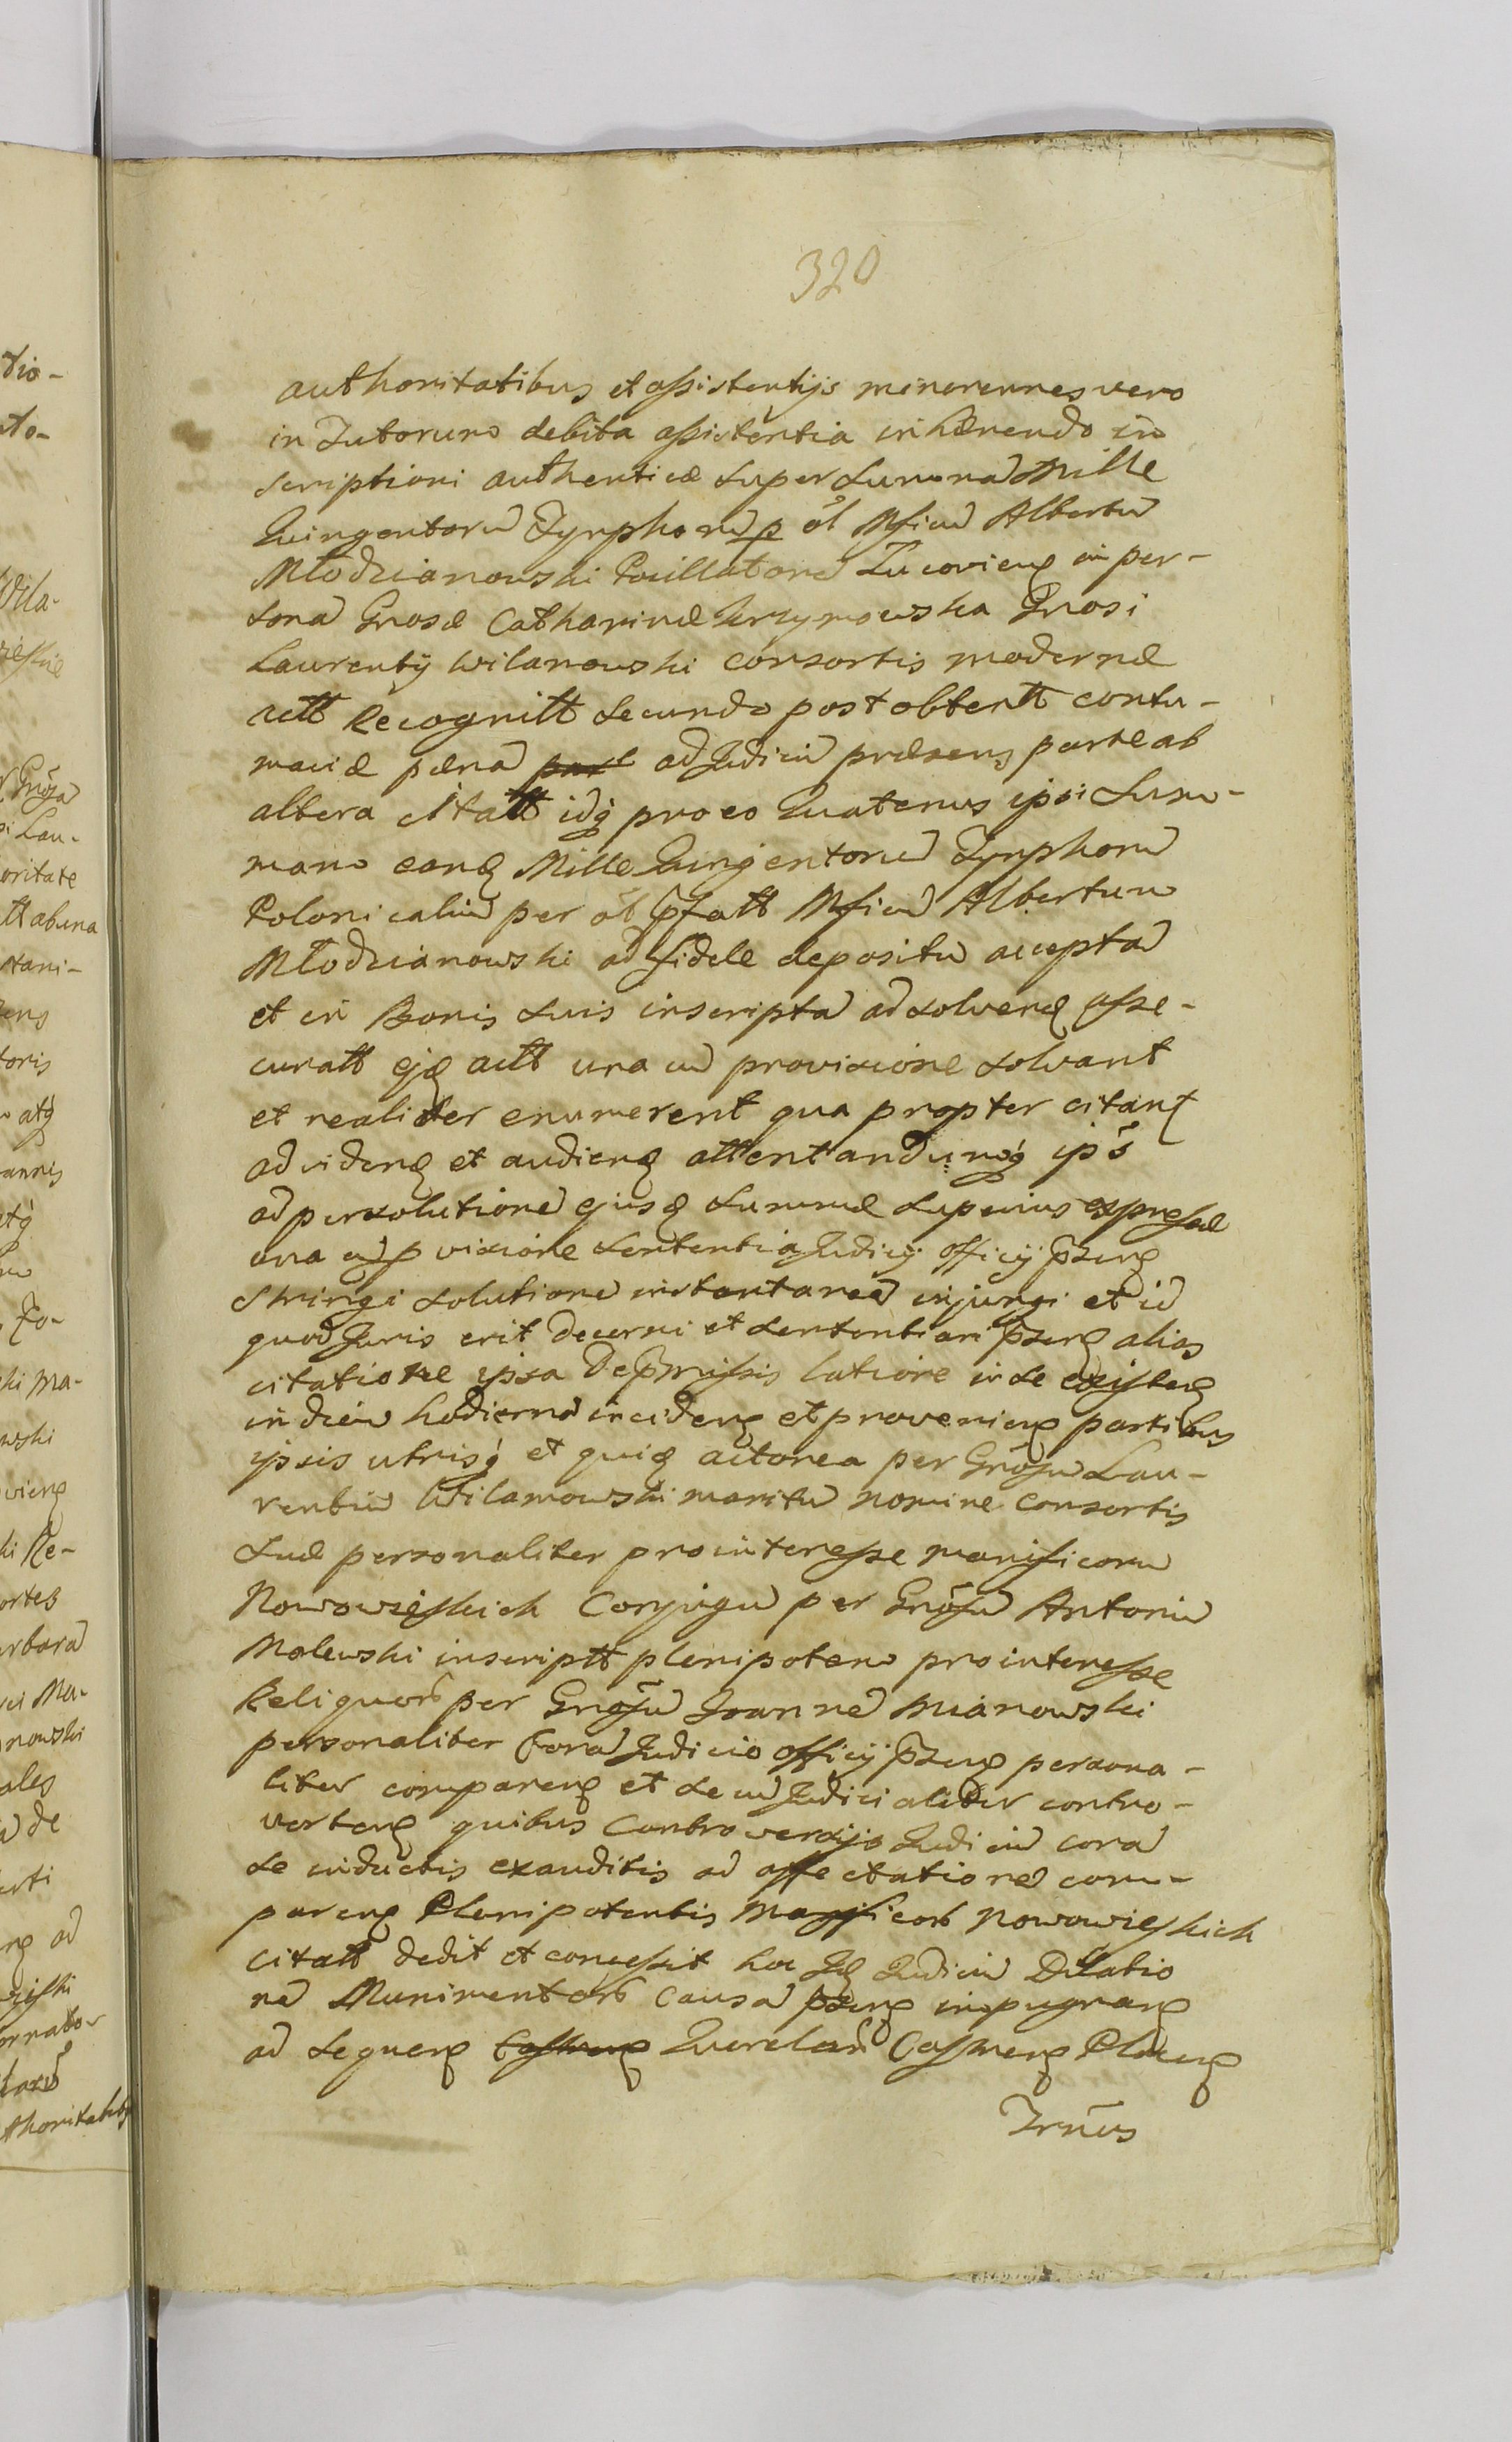 320
authoritatibus et assistentijs minorennes vero
in Tutorum debita assistentia inhærendo in
scriptioni authenticæ super summã Mille
Quingentorũ Tynphorũ p ol Mficũ Albertũ
Młodzianowski Pocillatorẽ Lucovieñ in per-
sonã Gnosæ Catharinæ Krzymowska Gnosi
Laurentÿ Wilamowski consortis modernæ
actt Recognitt secundo post obtentt contu-
maciæ pænã ad Judiciũ præsens parte ab
altera citatt idq pro eo Quatenus ipsi Sum-
mam eand Mille Quingentorũ Tynphorũ
Polonicaliũ per ol pfatt Mficũ Albertum
Młodzianowski ad fidele depositũ acceptã
et in Bonis suis inscriptã ad solvend asse-
curatt ejd actt una cũ provisione solvant
et realiter enumerent qua propter citant
ad videnđ et audienđ attentandumq ips
ad persolutionẽ ejusđ Summæ superius expressæ
una cũ p visione sententia Judicÿ officÿ pseñ
stringi solutionẽ instantaneã injungi et id
quod Juris erit decerni et sententiari pseñ alias
citatione ipsa de pmissis latiore in se existeñ
in diem hodiernã incideñ et provenieñ partibus
ipsis utrisq et quiđ actorea per Gnosũ Lau-
rentiũ Wilamowski maritũ nomine consortis
suæ personaliter pro interesse manificorũ
Nowowieyskich Conjugũ per Gnosũ Antoniũ
Malewski inscriptt plenipotem pro interesse
Reliquorũ per Gnosũ Joannẽ Mianowski
personaliter Corã Judicio officÿ pseñ persona-
liter compareñ et secũ Judicialiter contro-
verteñ quibus Controversijs Judiciũ corã
se inductis exauditis ad affectationẽ com-
pareñ Plenipotentis Magnificorũ Nowowieyskich
citatt dedit et concessit hoc Iđ Judiciũ Dilatio
nẽ Munimentorũ Causã pseñ impugnanđ
ad sequeñ Querelarũ Castreñ Ploceñ
Trnũs